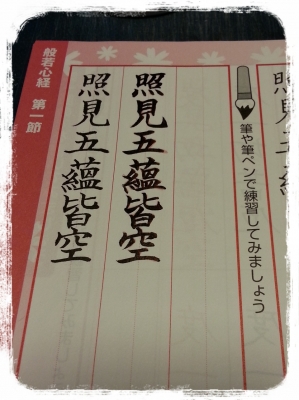 筆や筆ペンで練習してみましょう
照見五蘊皆空
照見五蘊皆空
般若心経 第一節